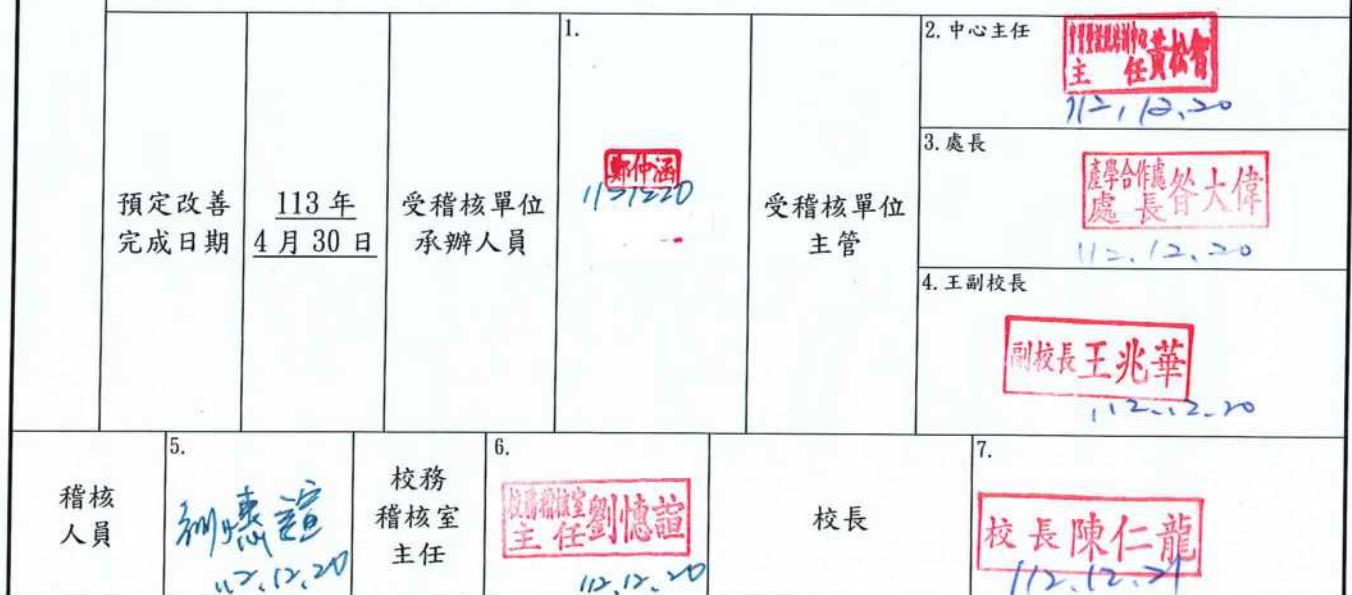 預定改善
完成日期
113 年
4 月 30 日
受稽核單位
承辦人員
1.
鄭仲涵
1121220
受稽核單位
主管
2. 中心主任
主 任 黃松智
112,12,20
3. 處長
產學合作處
處 長 昝大偉
112.12.20
4. 王副校長
副校長 王兆華
112.12.20
稽核
人員
5.
劉憓諠
112.12.20
校務
稽核室
主任
6.
校務稽核室
主 任 劉憓諠
112.12.20
校長
7.
校長 陳仁龍
112.12.21